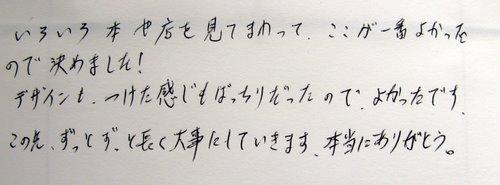 いろいろ本や店を見てまわって、ここが一番よかった
ので決めました！
デザインも、つけた感じもばっちりだったので、よかったです。
この先、ずっとずっと長く大事にしていきます。本当にありがとう。